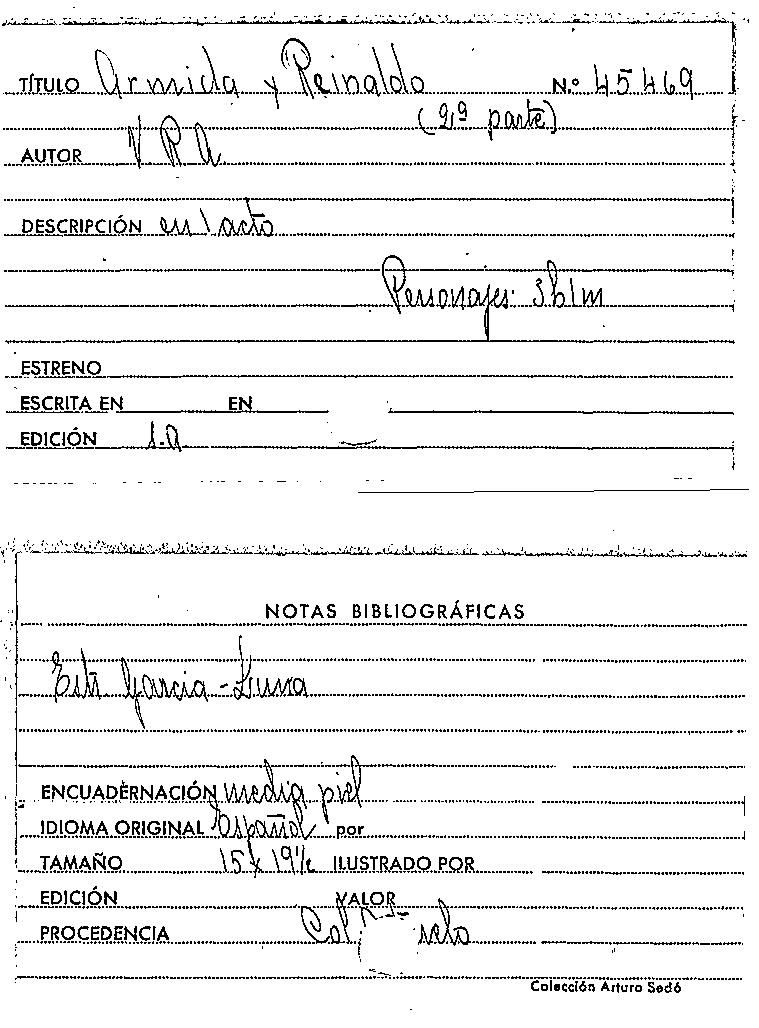 TÍTULO Armida y Reinaldo N.º 45469
(2ª parte)
AUTOR V R A
DESCRIPCIÓN en 1 acto
Personajes: 3h 1m
ESTRENO
ESCRITA EN EN
EDICIÓN s.a
NOTAS BIBLIOGRÁFICAS
Garcia -
ENCUADERNACIÓN media piel
IDIOMA ORIGINAL Español por
TAMAÑO 15 x 19½ ILUSTRADO POR
EDICIÓN VALOR
PROCEDENCIA Col
Colección Arturo Sedó